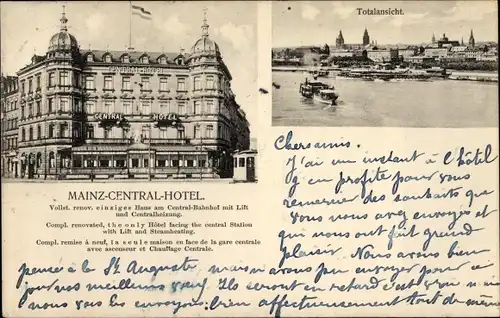 Totalansicht.
CENTRAL HOTEL
MAINZ-CENTRAL-HOTEL.
Vollst. renov. einziges Haus am Central-Bahnhof mit Lift
und Centralheizung.
Compl. renovated, the only Hôtel facing the central Station
with Lift and Steamheating.
Compl. remise à neuf, la seule maison en face de la gare centrale
avec ascenseur et Chauffage Centrale.
Chers amis.
J'ai un instant à l'hôtel
j'en profite pour vous
remercier des souhaits que
vous nous avez envoyés et
qui nous ont fait grand
plaisir. Nous avions bien
pensé à la St Auguste mais n'avons pu envoyer pour ce
jour nos meilleurs vœux. Ils seront en retard c'est vrai mais
nous vous les envoyons bien affectueusement tout de même